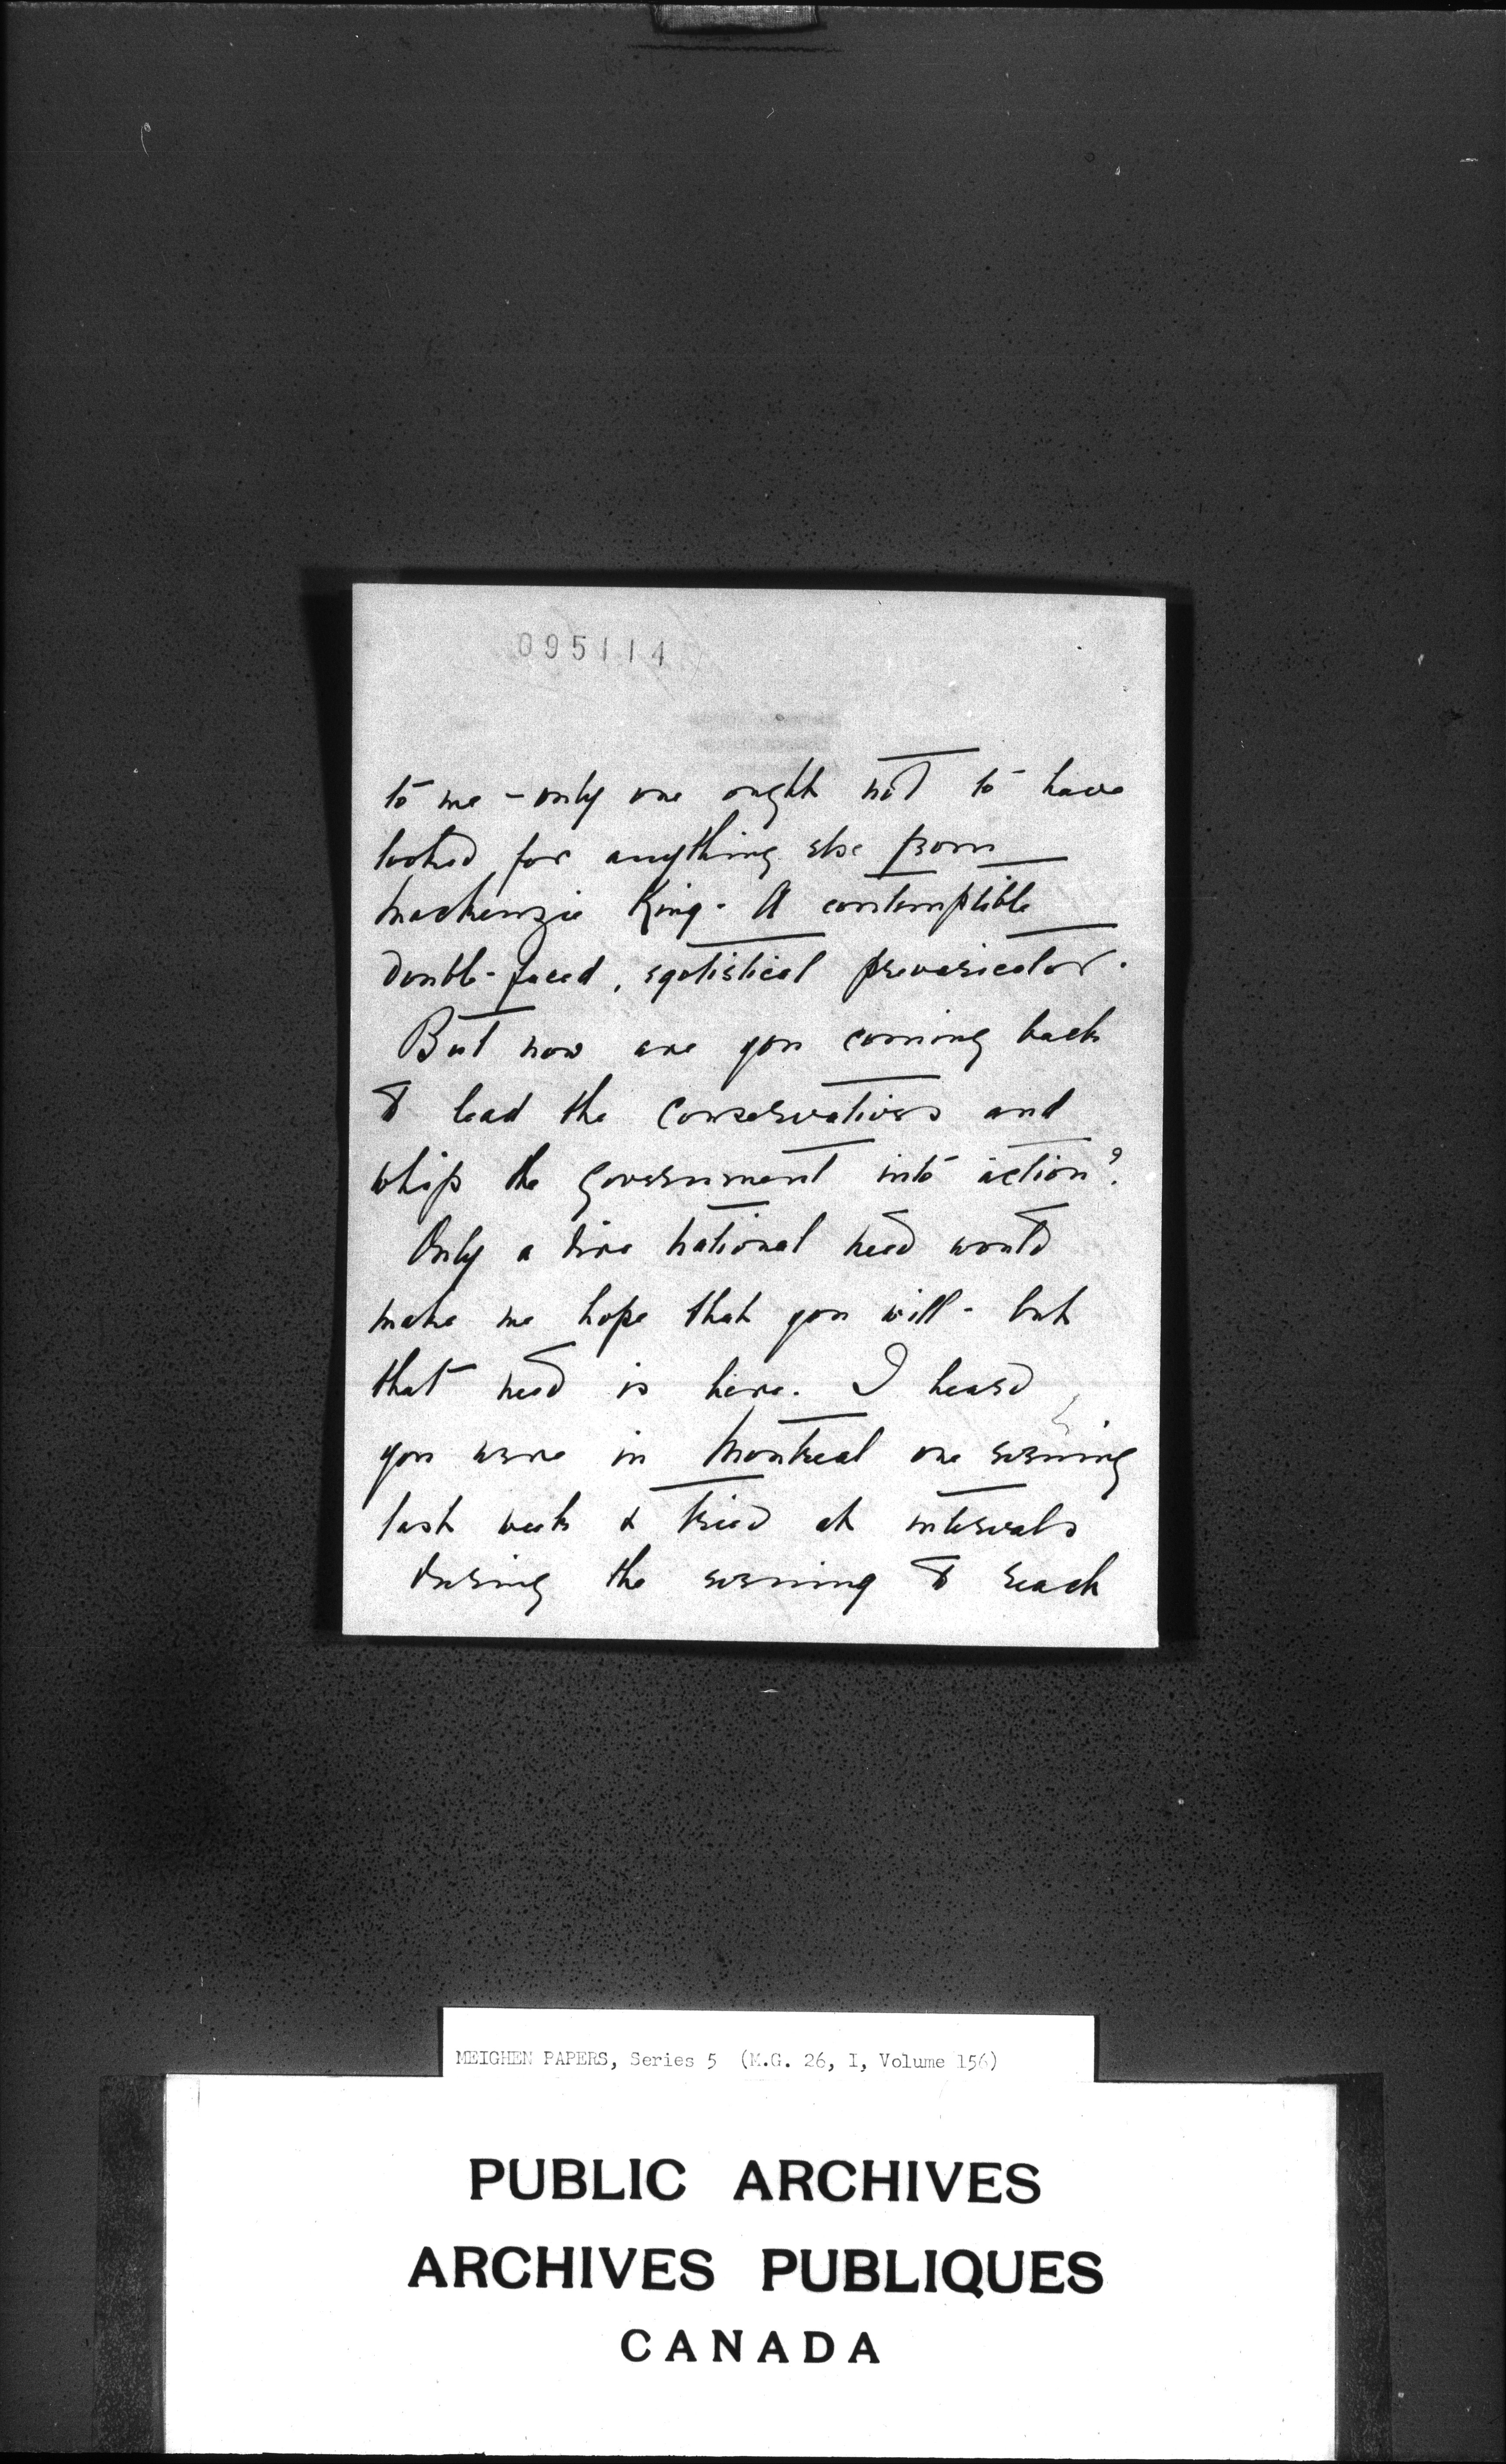 095114
to me - only one ought not to have
looked for anything else from
Mackenzie King - A contemptible
double-faced, egotistical prevaricator.
But now are you coming back
to lead the Conservatives and
whip the Government into action?
Only a dire national need would
make me hope that you will - but
that need is here. I heard
you were in Montreal one evening
last week & tried at intervals
during the evening to reach
MEIGHEN PAPERS, Series 5 (M.G. 26, I, Volume 156)
PUBLIC ARCHIVES
ARCHIVES PUBLIQUES
CANADA